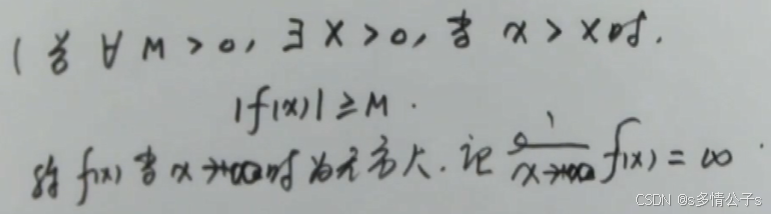 (若 ∀ M > 0, ∃ X > 0, 当 x > X时.
|f(x)| ≥ M .
称 f(x) 当 x→+∞时 为无穷大. 记 x→+∞ f(x) = ∞ .
CSDN @s多情公子s